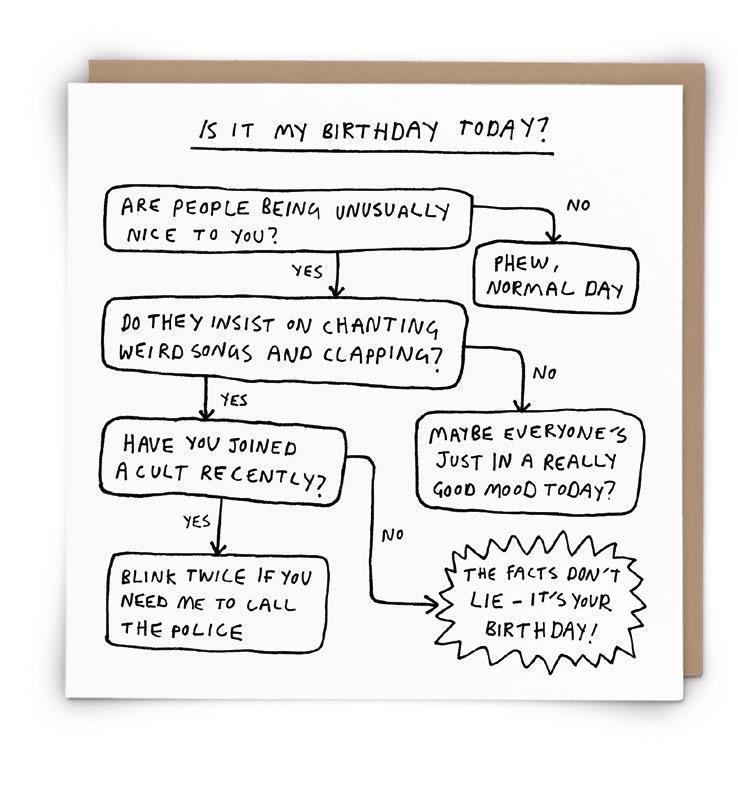 IS IT MY BIRTHDAY TODAY?
ARE PEOPLE BEING UNUSUALLY
NICE TO YOU?
NO
PHEW,
NORMAL DAY
YES
DO THEY INSIST ON CHANTING
WEIRD SONGS AND CLAPPING?
NO
YES
MAYBE EVERYONE'S
JUST IN A REALLY
GOOD MOOD TODAY?
HAVE YOU JOINED
A CULT RECENTLY?
YES
NO
BLINK TWICE IF YOU
NEED ME TO CALL
THE POLICE
THE FACTS DON'T
LIE – IT'S YOUR
BIRTHDAY!